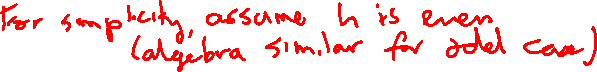 For simplicity, assume h is even
(algebra similar for odd case)